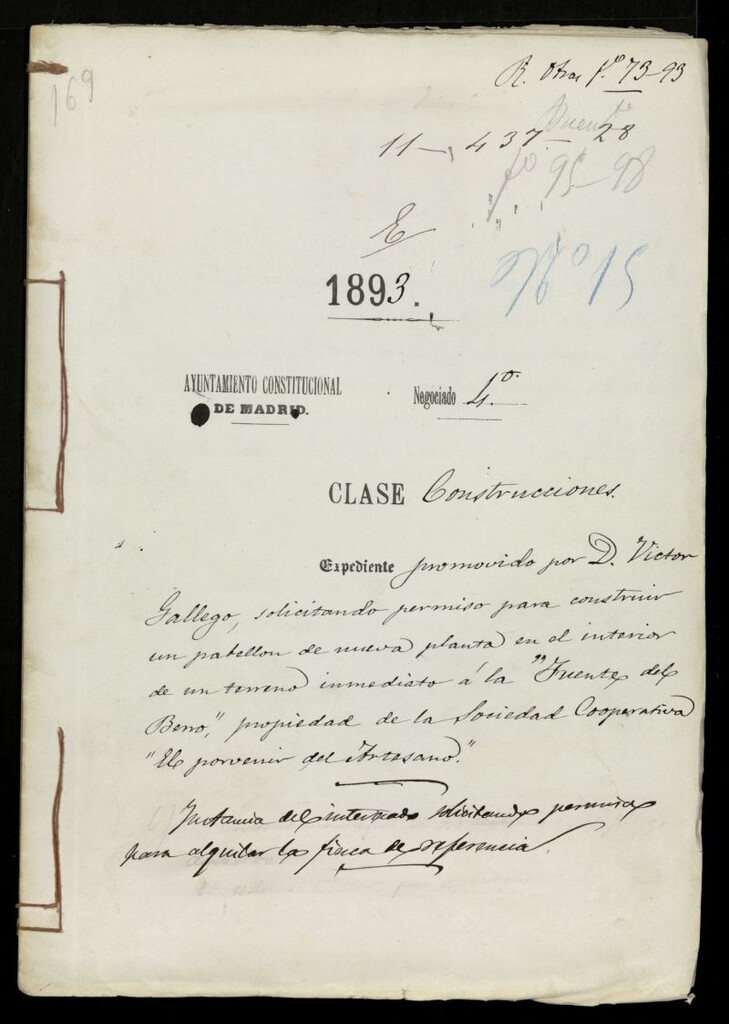 169
R. Otras fº 73-93
11-437-28
fº 95-98
E
Nº 15
1893.
AYUNTAMIENTO CONSTITUCIONAL
DE MADRID.
Negociado 4º
CLASE Construcciones.
Expediente promovido por D. Victor
Gallego, solicitando permiso para construir
un pabellon de nueva planta en el interior
de un terreno inmediato á la "Fuente del
Berro," propiedad de la Sociedad Cooperativa
"El porvenir del Artesano."
Instancia del interesado solicitando permiso
para alquilar la finca de referencia.